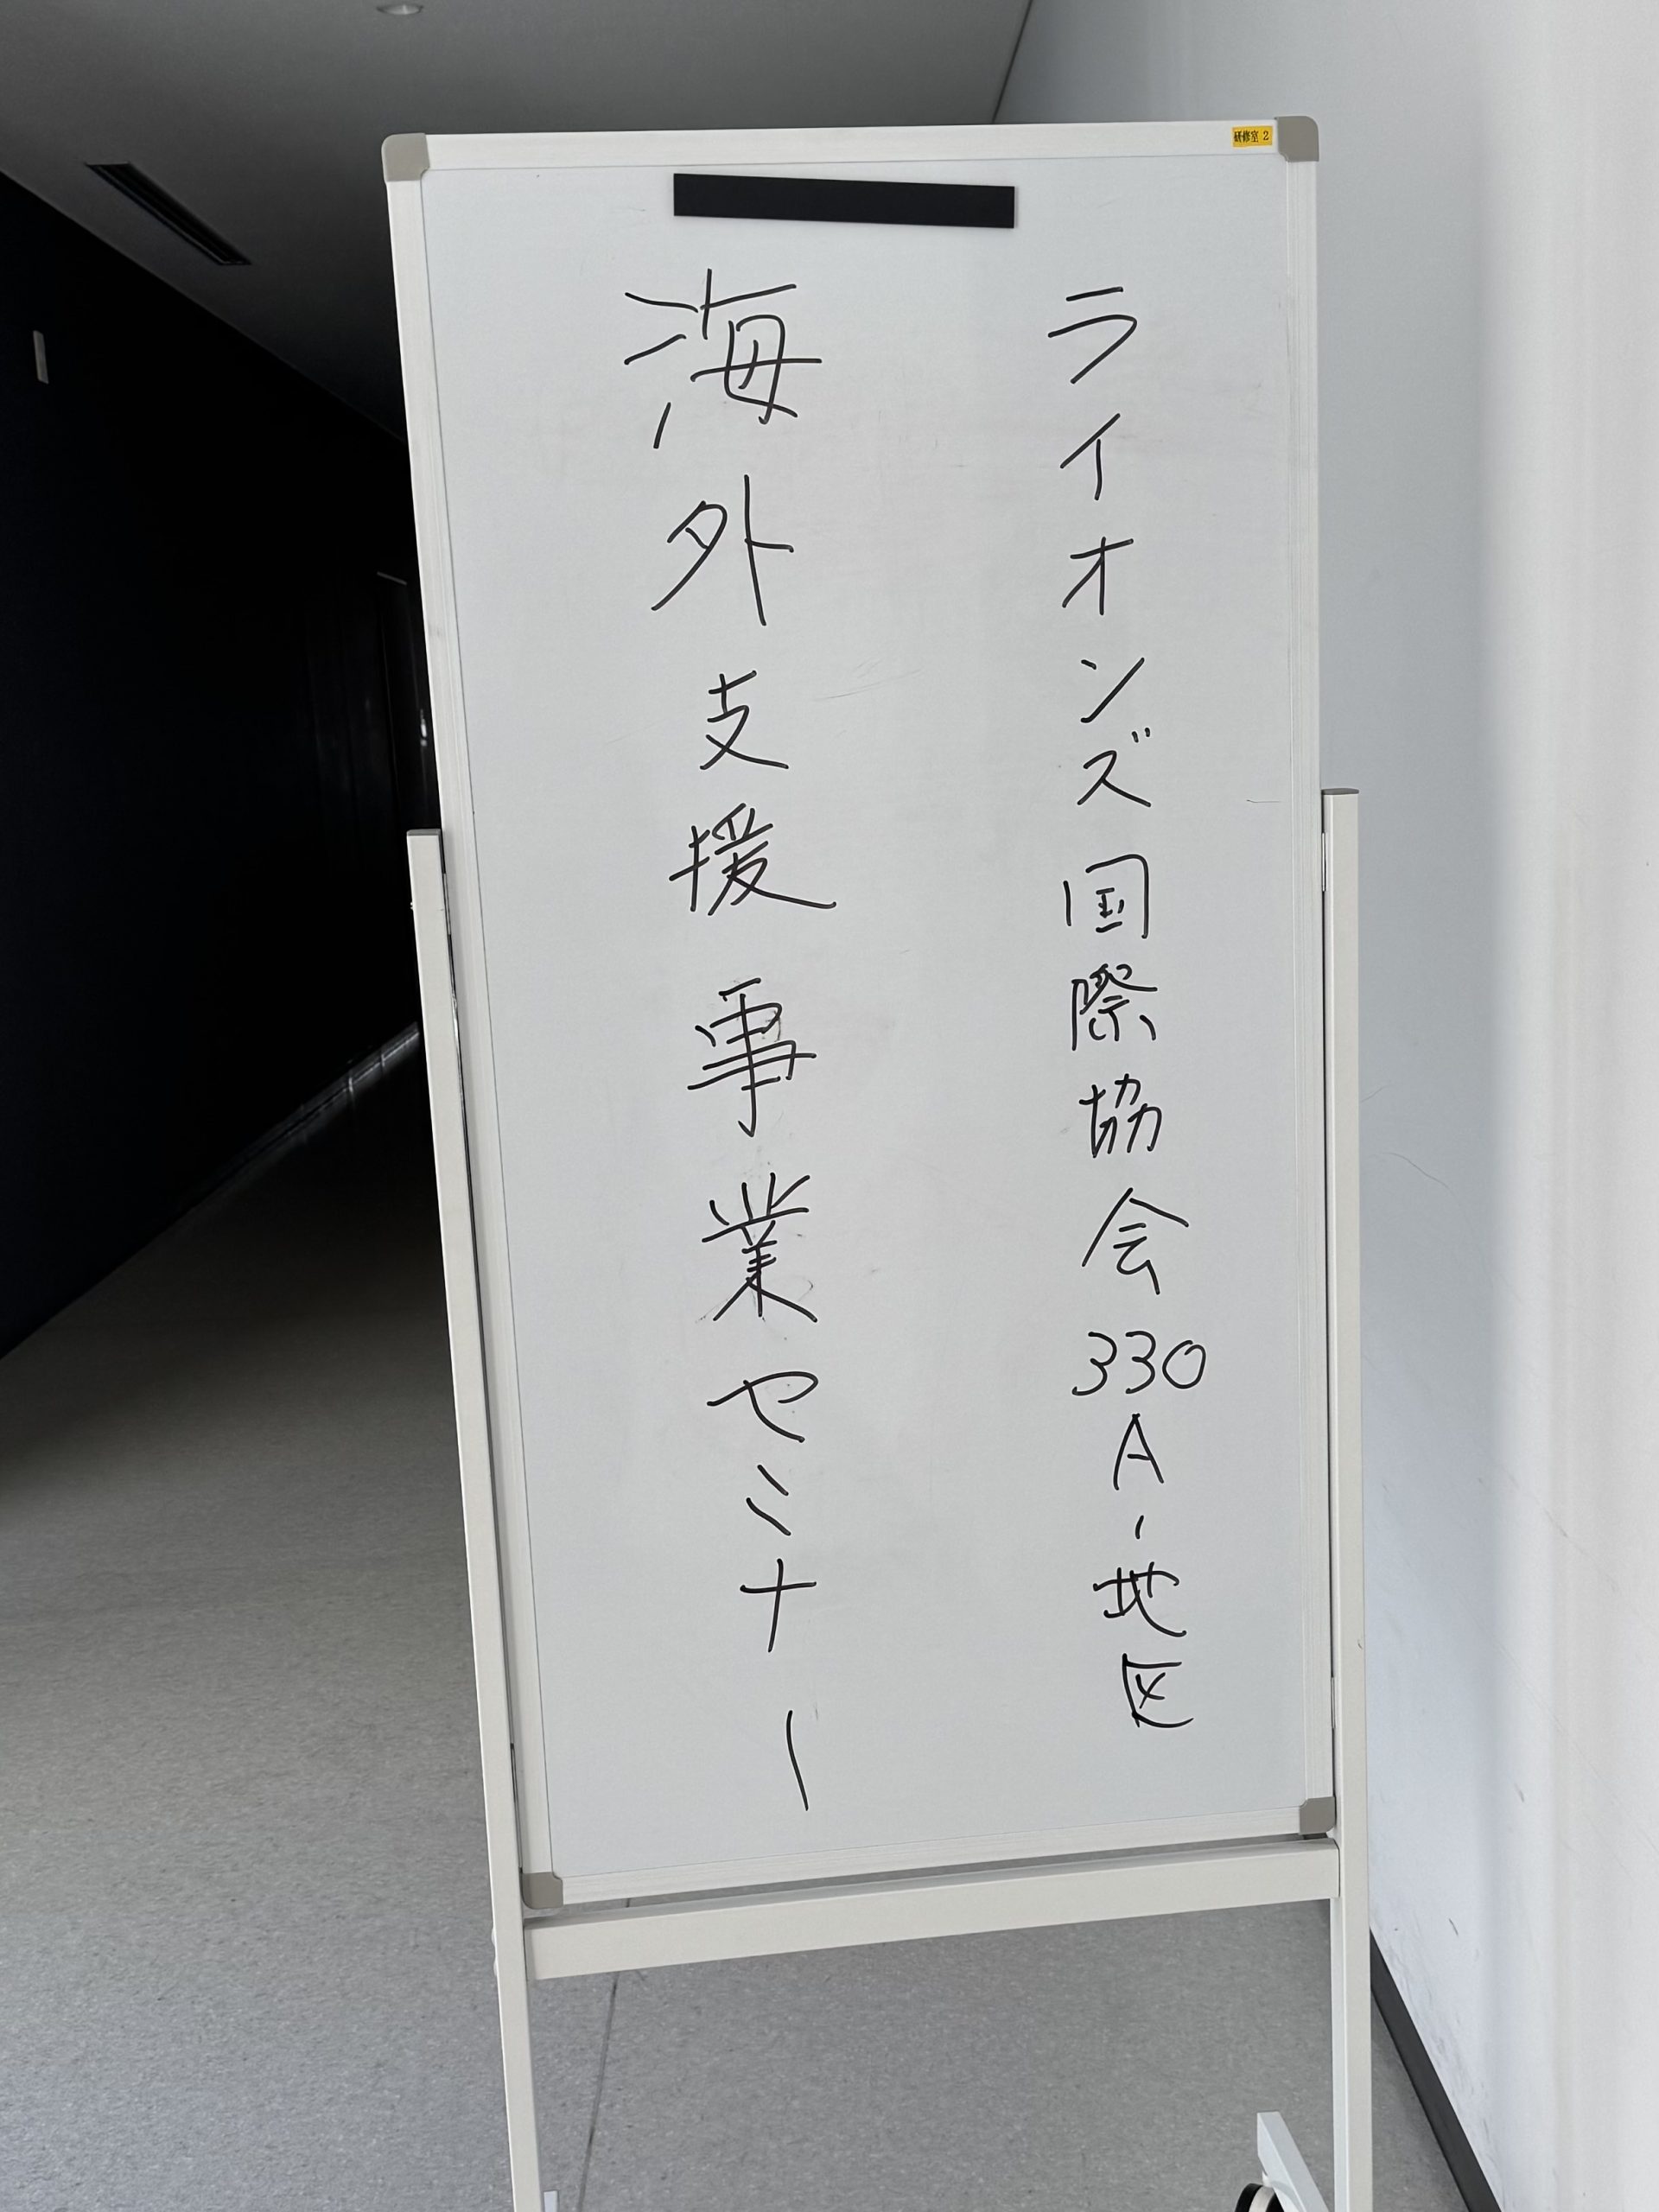 研修室 2
ライオンズ国際協会330A-地区
海外支援事業セミナー